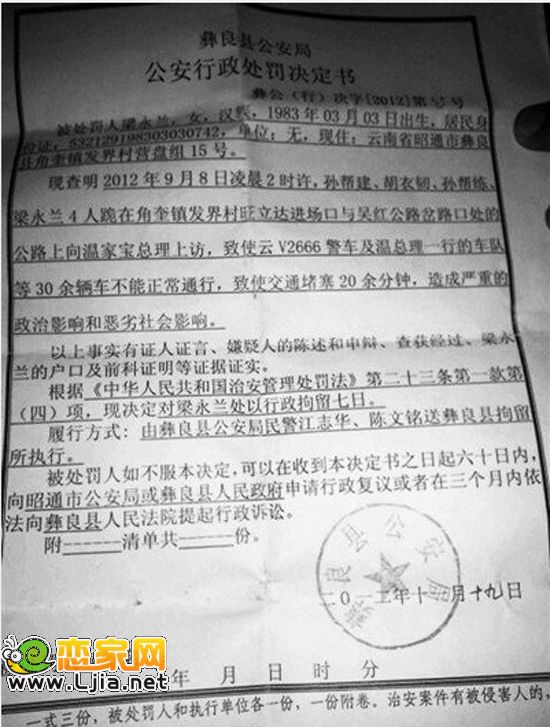 彝良县公安局
公安行政处罚决定书
彝公（行）决字[2012]第 号
被处罚人梁永兰，女，汉族，1983年03月03日出生，居民身
份证，532129198303030742，单位：无，现住：云南省昭通市彝良
县角奎镇发界村营盘组15号。
现查明2012年9月8日凌晨2时许，孙帮建、胡衣韧、孙帮练、
梁永兰4人跪在角奎镇发界村旺立达进场口与吴红公路岔路口处的
公路上向温家宝总理上访，致使云V2666警车及温总理一行的车队
等30余辆车不能正常通行，致使交通堵塞20余分钟，造成严重的
政治影响和恶劣社会影响。
以上事实有证人证言、嫌疑人的陈述和申辩、查获经过、梁永
兰的户口及前科证明等证据证实。
根据《中华人民共和国治安管理处罚法》第二十三条第一款第
（四）项，现决定对梁永兰处以行政拘留七日。
履行方式：由彝良县公安局民警江志华、陈文铭送彝良县拘留
所执行。
被处罚人如不服本决定，可以在收到本决定书之日起六十日内，
向昭通市公安局或彝良县人民政府申请行政复议或者在三个月内依
法向彝良县人民法院提起行政诉讼。
附------清单共------份。
彝良县公安局
二〇一二年十一月十九日
年 月 日 时 分
恋家网
www.Ljia.net
一式三份，被处罚人和执行单位各一份，一份附卷。治安案件有被侵害人的，